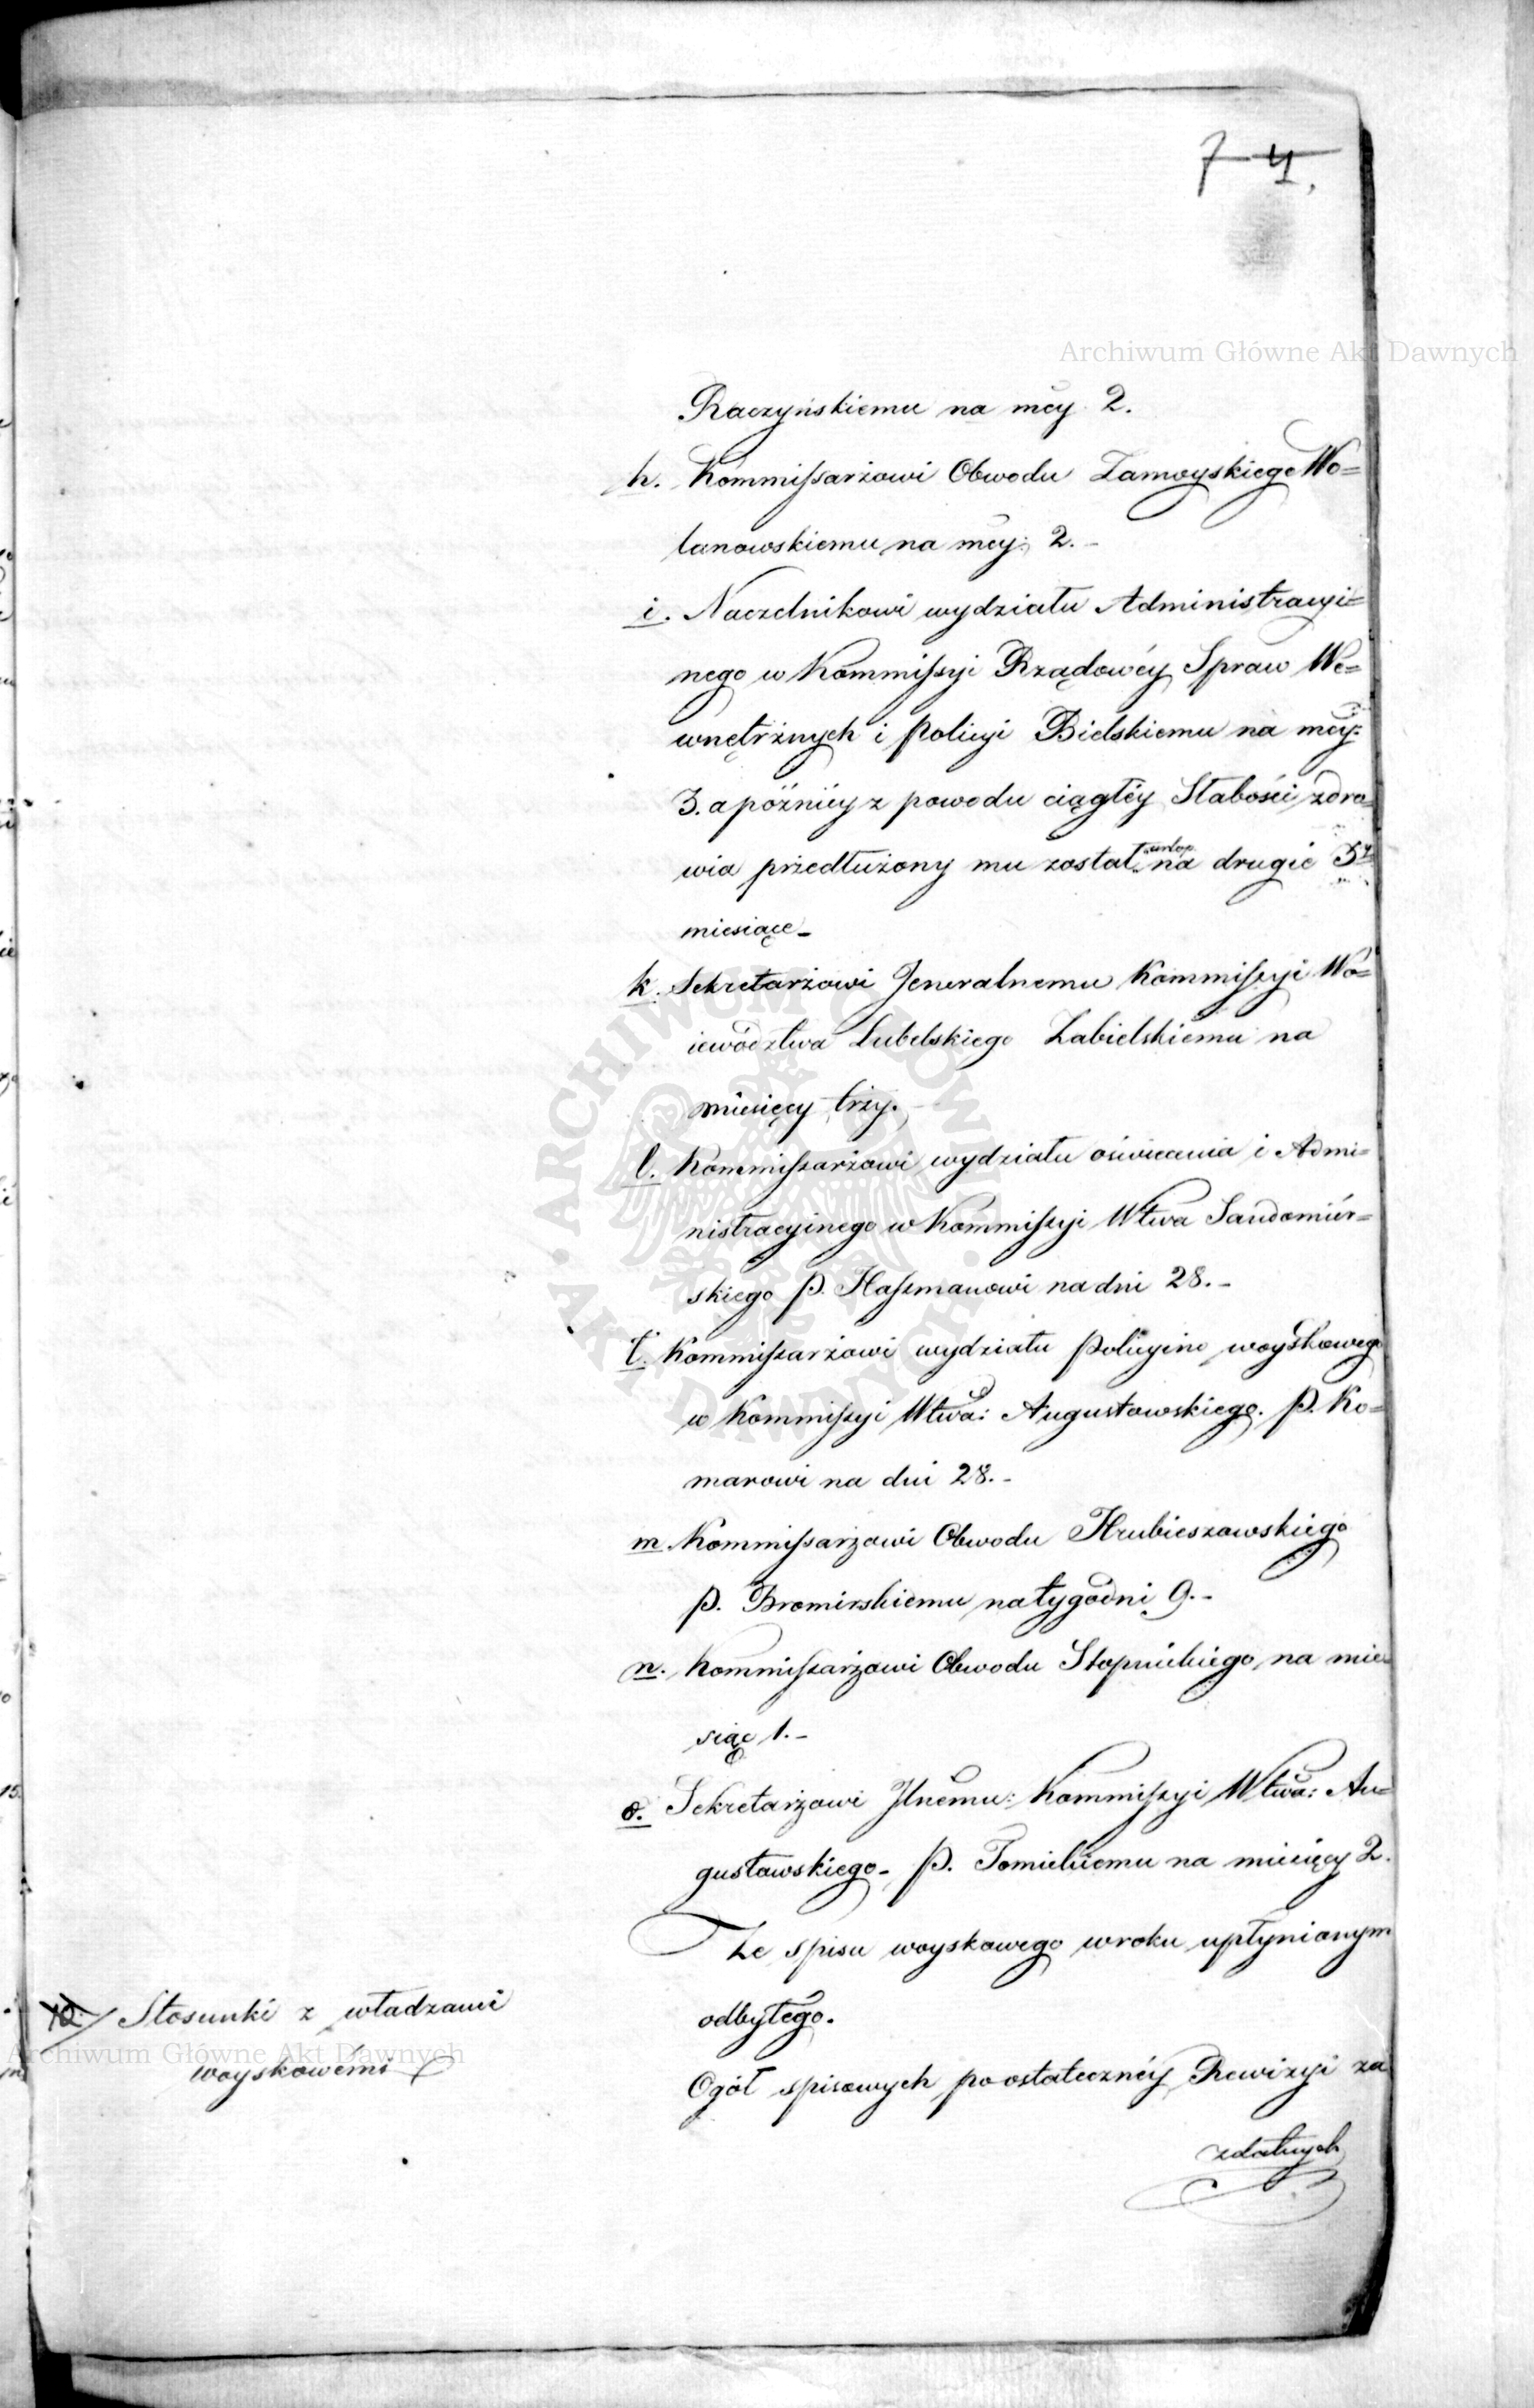 7 4.
Archiwum Główne Akt Dawnych
Raczyńskiemu na mcy 2.
h. Kommissarzowi Obwodu Zamoyskiego Wo=
lanowskiemu na mcy: 2.-
i. Naczelnikowi wydziału Administracyi=
nego w Kommissyi Rządowéy Spraw We=
wnętrznych i Policyi Bielskiemu na mcy:
3. a późniéy z powodu ciągłéy Słabości zdro=
wia przedłużony mu został urlop na drugie 3y
miesiące_
k. Sekretarzowi Jeneralnemu Kommissyi Wo=
iewództwa Lubelskiego Zabielskiemu na
miesięcy trzy.
l. Kommissarzowi wydziału oświecenia i Admi=
nistracyinego w Kommissyi Wtwa Sandomiér=
skiego P. Haszmanowi na dni 28.-
ł. Kommissarzowi wydziału Policyino woyskowego
w Kommissyi Wtwa: Augustowskiego. P. Ko=
marowi na dni 28.-
m. Kommissarzowi Obwodu Hrubieszowskiego
P. Bromirskiemu na tygodni 9.-
n. Kommissarzowi Obwodu Stopnickiego na mie
siąc 1.-
o. Sekretarzowi Jlnemu: Kommissyi Wtwa: Au=
gustowskiego_ P. Tomickiemu na miesięcy 2.
Ze spisu woyskowego w roku upłynionym
odbytego.
10/ Stosunki z władzami
woyskowémi
Archiwum Główne Akt Dawnych
Ogół spisowych po ostatecznéy Rewizyi za
zdatnych
ARCHIWUM GŁÓWNE · AKT DAWNYCH ·